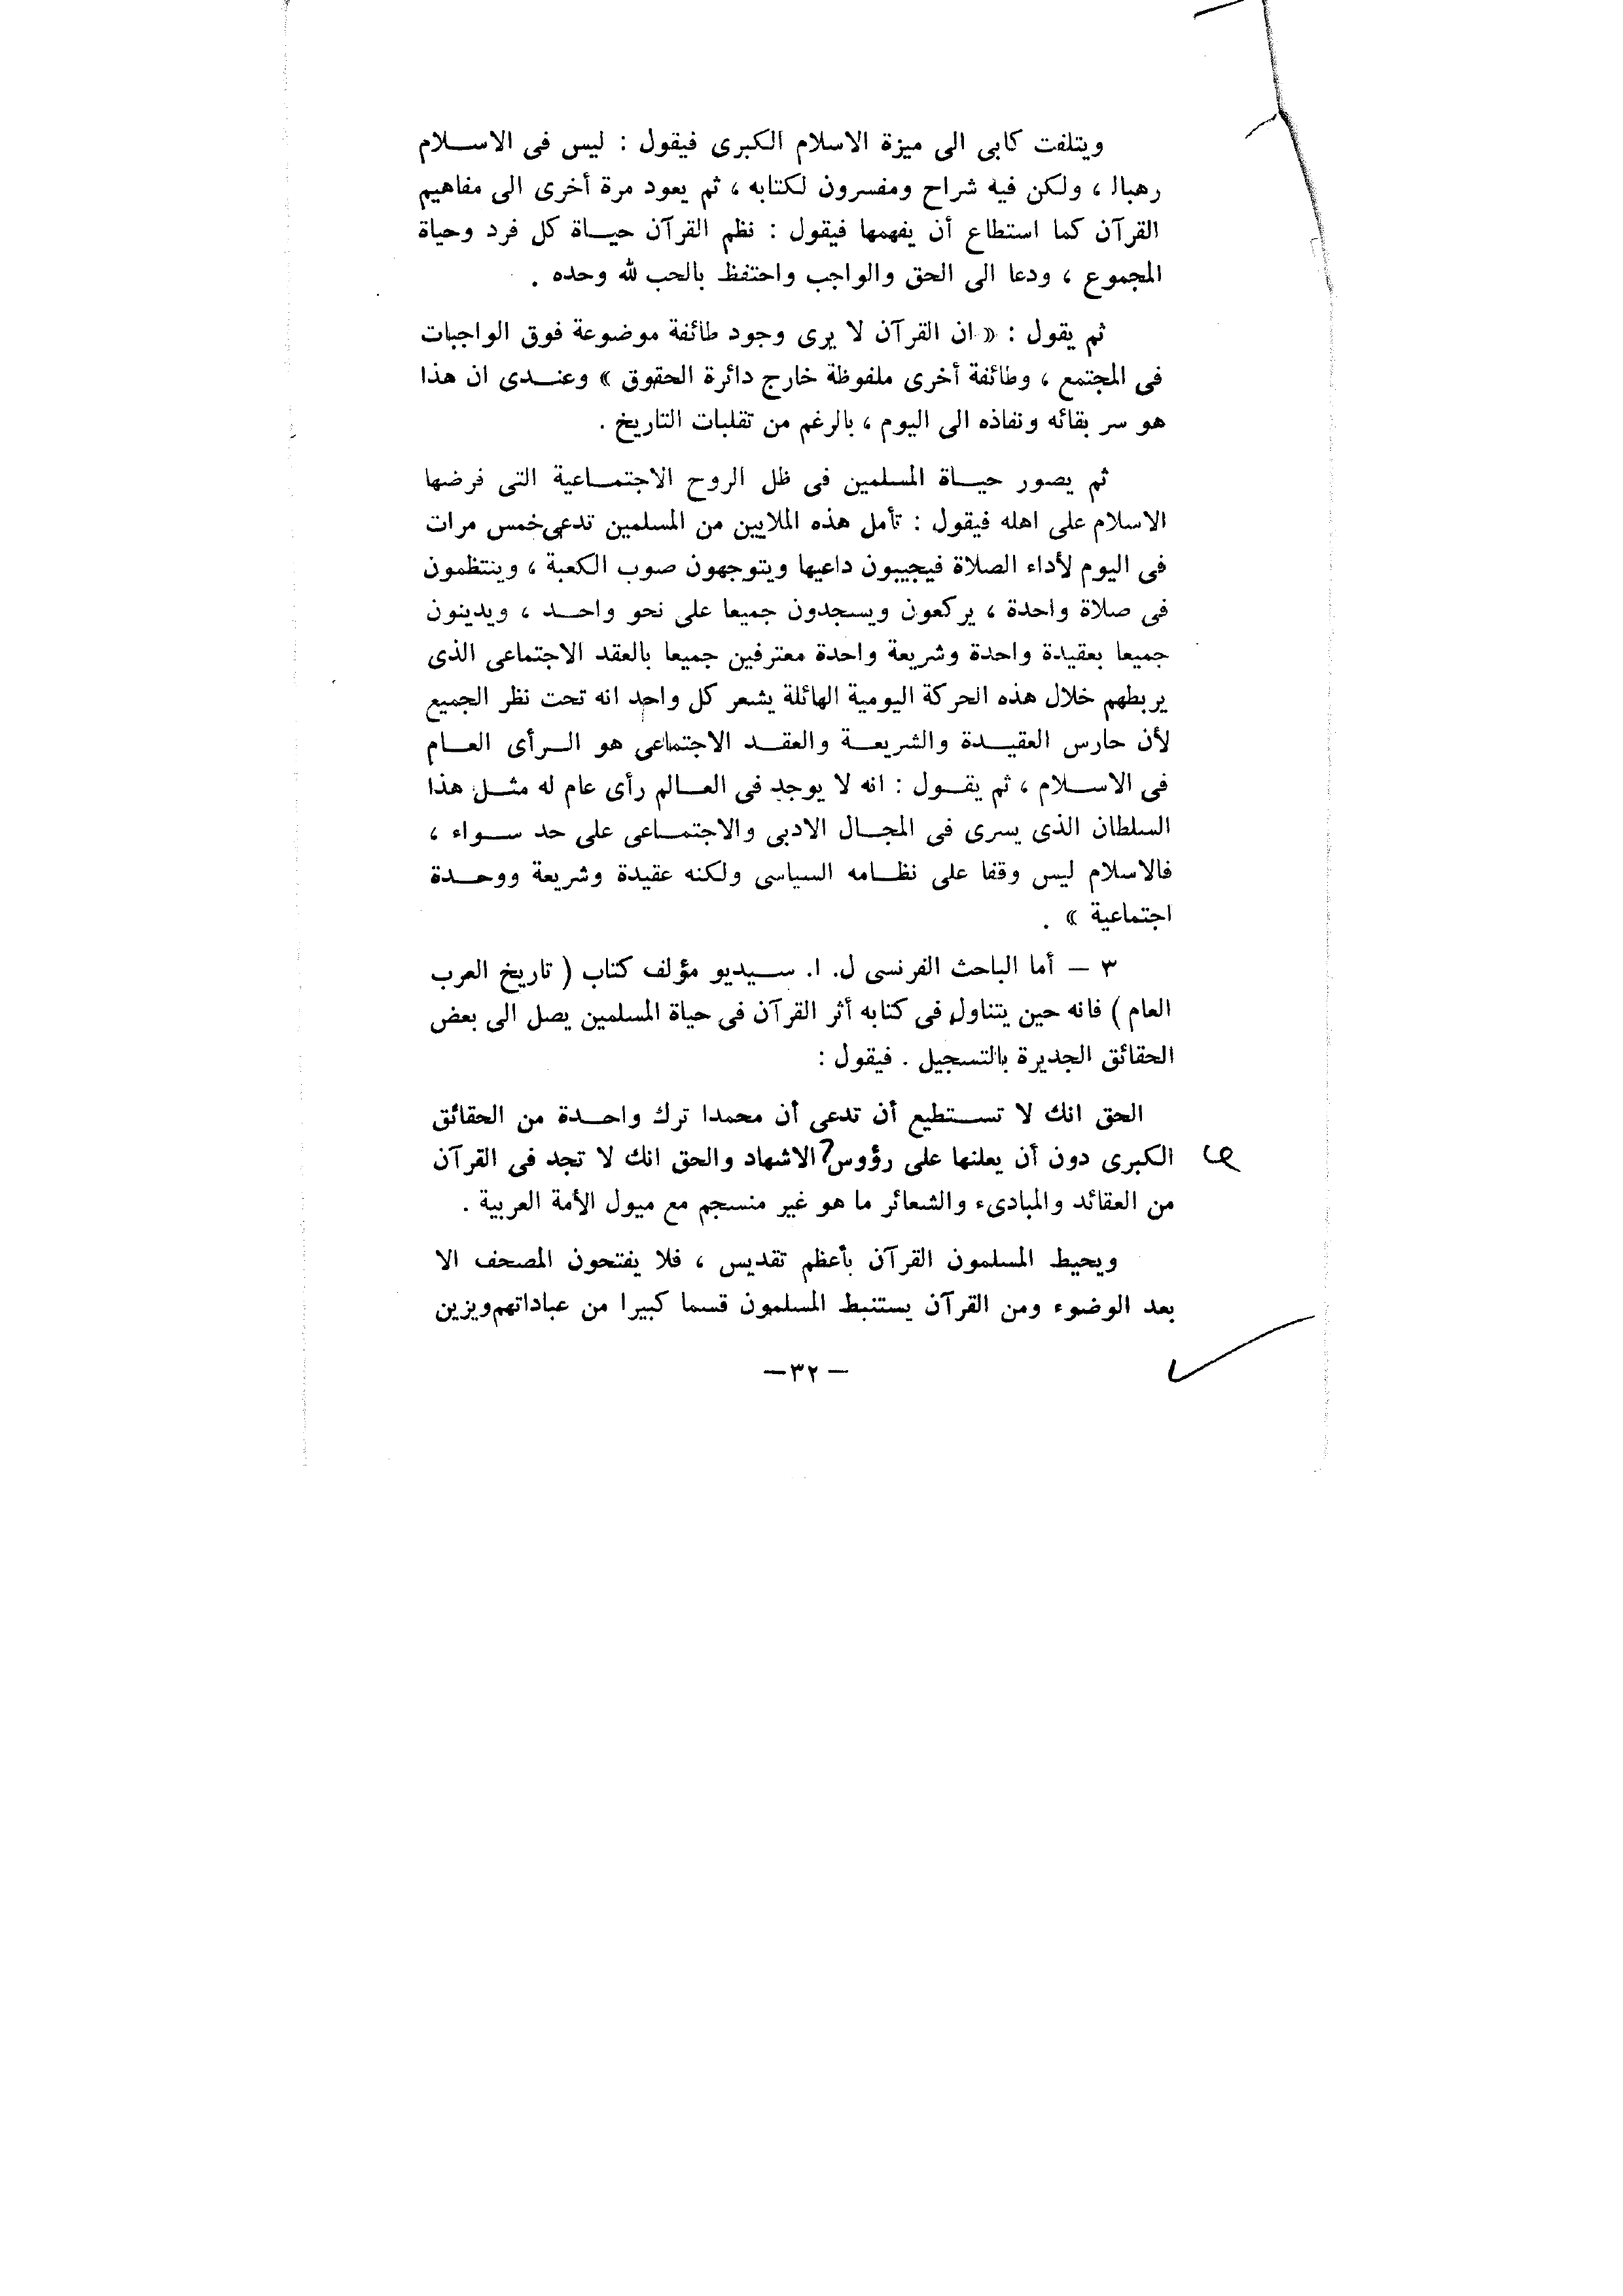 ويتلفت كابى الى ميزة الاسلام الكبرى فيقول : ليس فى الاسلام
رهبال ، ولكن فيه شراح ومفسرون لكتابه ، ثم يعود مرة أخرى الى مفاهيم
القرآن كما استطاع أن يفهمها فيقول : نظم القرآن حياة كل فرد وحياة
المجموع ، ودعا الى الحق والواجب واحتفظ بالحب لله وحده .
ثم يقول : « ان القرآن لا يرى وجود طائفة موضوعة فوق الواجبات
فى المجتمع ، وطائفة أخرى ملفوظة خارج دائرة الحقوق » وعندى ان هذا
هو سر بقائه ونفاذه الى اليوم ، بالرغم من تقلبات التاريخ .
ثم يصور حياة المسلمين فى ظل الروح الاجتماعية التى فرضها
الاسلام على اهله فيقول : تأمل هذه الملايين من المسلمين تدعى خمس مرات
فى اليوم لأداء الصلاة فيجيبون داعيها ويتوجهون صوب الكعبة ، وينتظمون
فى صلاة واحدة ، يركعون ويسجدون جميعا على نحو واحد ، ويدينون
جميعا بعقيدة واحدة وشريعة واحدة معترفين جميعا بالعقد الاجتماعى الذى
يربطهم خلال هذه الحركة اليومية الهائلة يشعر كل واحد انه تحت نظر الجميع
لأن حارس العقيدة والشريعة والعقد الاجتماعى هو الرأى العام
فى الاسلام ، ثم يقول : انه لا يوجد فى العالم رأى عام له مثل هذا
السلطان الذى يسرى فى المجال الادبى والاجتماعى على حد سواء ،
فالاسلام ليس وقفا على نظامه السياسى ولكنه عقيدة وشريعة ووحدة
اجتماعية » .
٣ – أما الباحث الفرنسى ل. ا. سيديو مؤلف كتاب ( تاريخ العرب
العام ) فانه حين يتناول فى كتابه أثر القرآن فى حياة المسلمين يصل الى بعض
الحقائق الجديرة بالتسجيل . فيقول :
الحق انك لا تستطيع أن تدعى أن محمدا ترك واحدة من الحقائق
الكبرى دون أن يعلنها على رؤوس الاشهاد والحق انك لا تجد فى القرآن
من العقائد والمبادىء والشعائر ما هو غير منسجم مع ميول الأمة العربية .
ويحيط المسلمون القرآن بأعظم تقديس ، فلا يفتحون المصحف الا
بعد الوضوء ومن القرآن يستنبط المسلمون قسما كبيرا من عباداتهم ويزين
– ٣٢ –